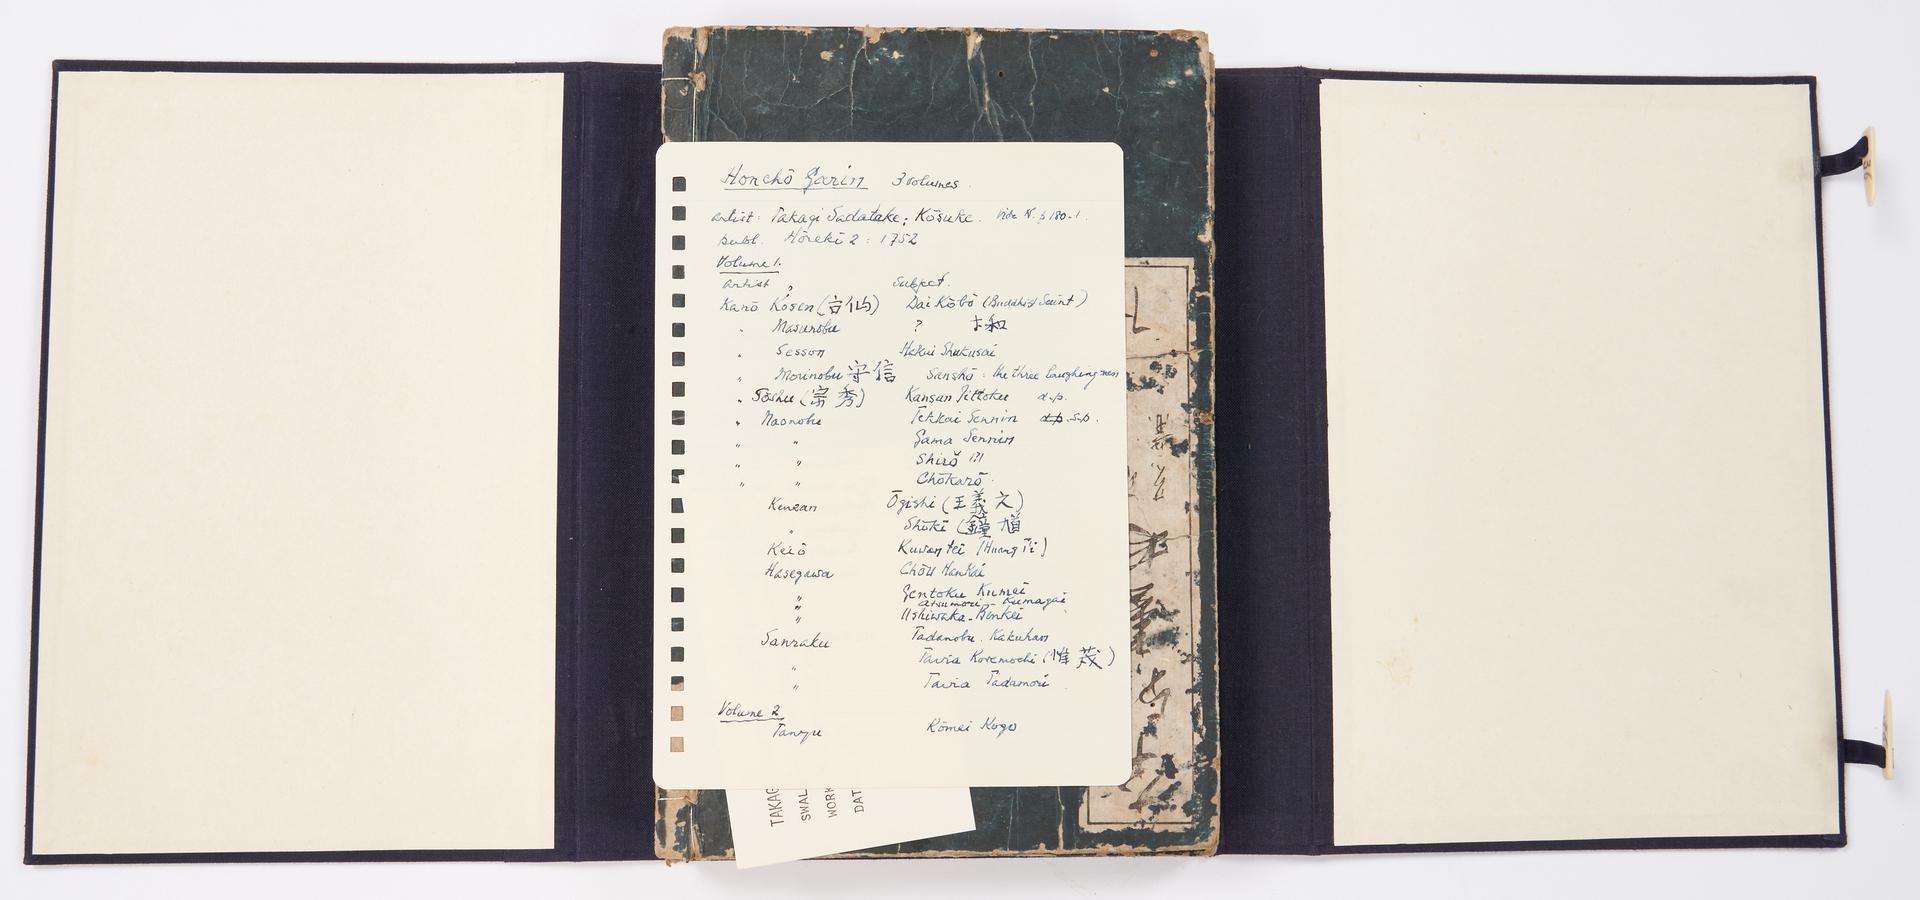 Honchō Garin 3 Volumes.
artist: Takagi Sadatake; Kōsuke. vide N. p 180-1.
publ. Hōreki 2 : 1752
Volume 1.
artist Subject.
Kanō Kosen (古仙) Dai Kōbō (Buddhist Saint)
" Masunobu ? 卞和
" Sesson Hakui Shukusai
" Morinobu 守信 Sanshō : the three laughing men
" Sōshu (宗秀) Kansan Jittoku d.p.
" Naonobu Tekkai Sennin d.p. s.p.
" " Gama Sennin
" " Shirō ?!
" " Chōkarō.
Kenzan Ōgishi (王義之)
" Shōki (鐘馗
Keiō Kuwan tei (Huang Ti)
Hasegawa Chōu Hankai
" Gentoku Kumei
" Atsumori - Kumagai
" Ushiwaka - Benkei
Sanraku Tadanobu. Kakuhan
" Taira Koremochi (惟茂)
" Taira Tadamori
Volume 2
Tanyu Kōmei Kogo
TAKAG
SWAL
WORK
DAT